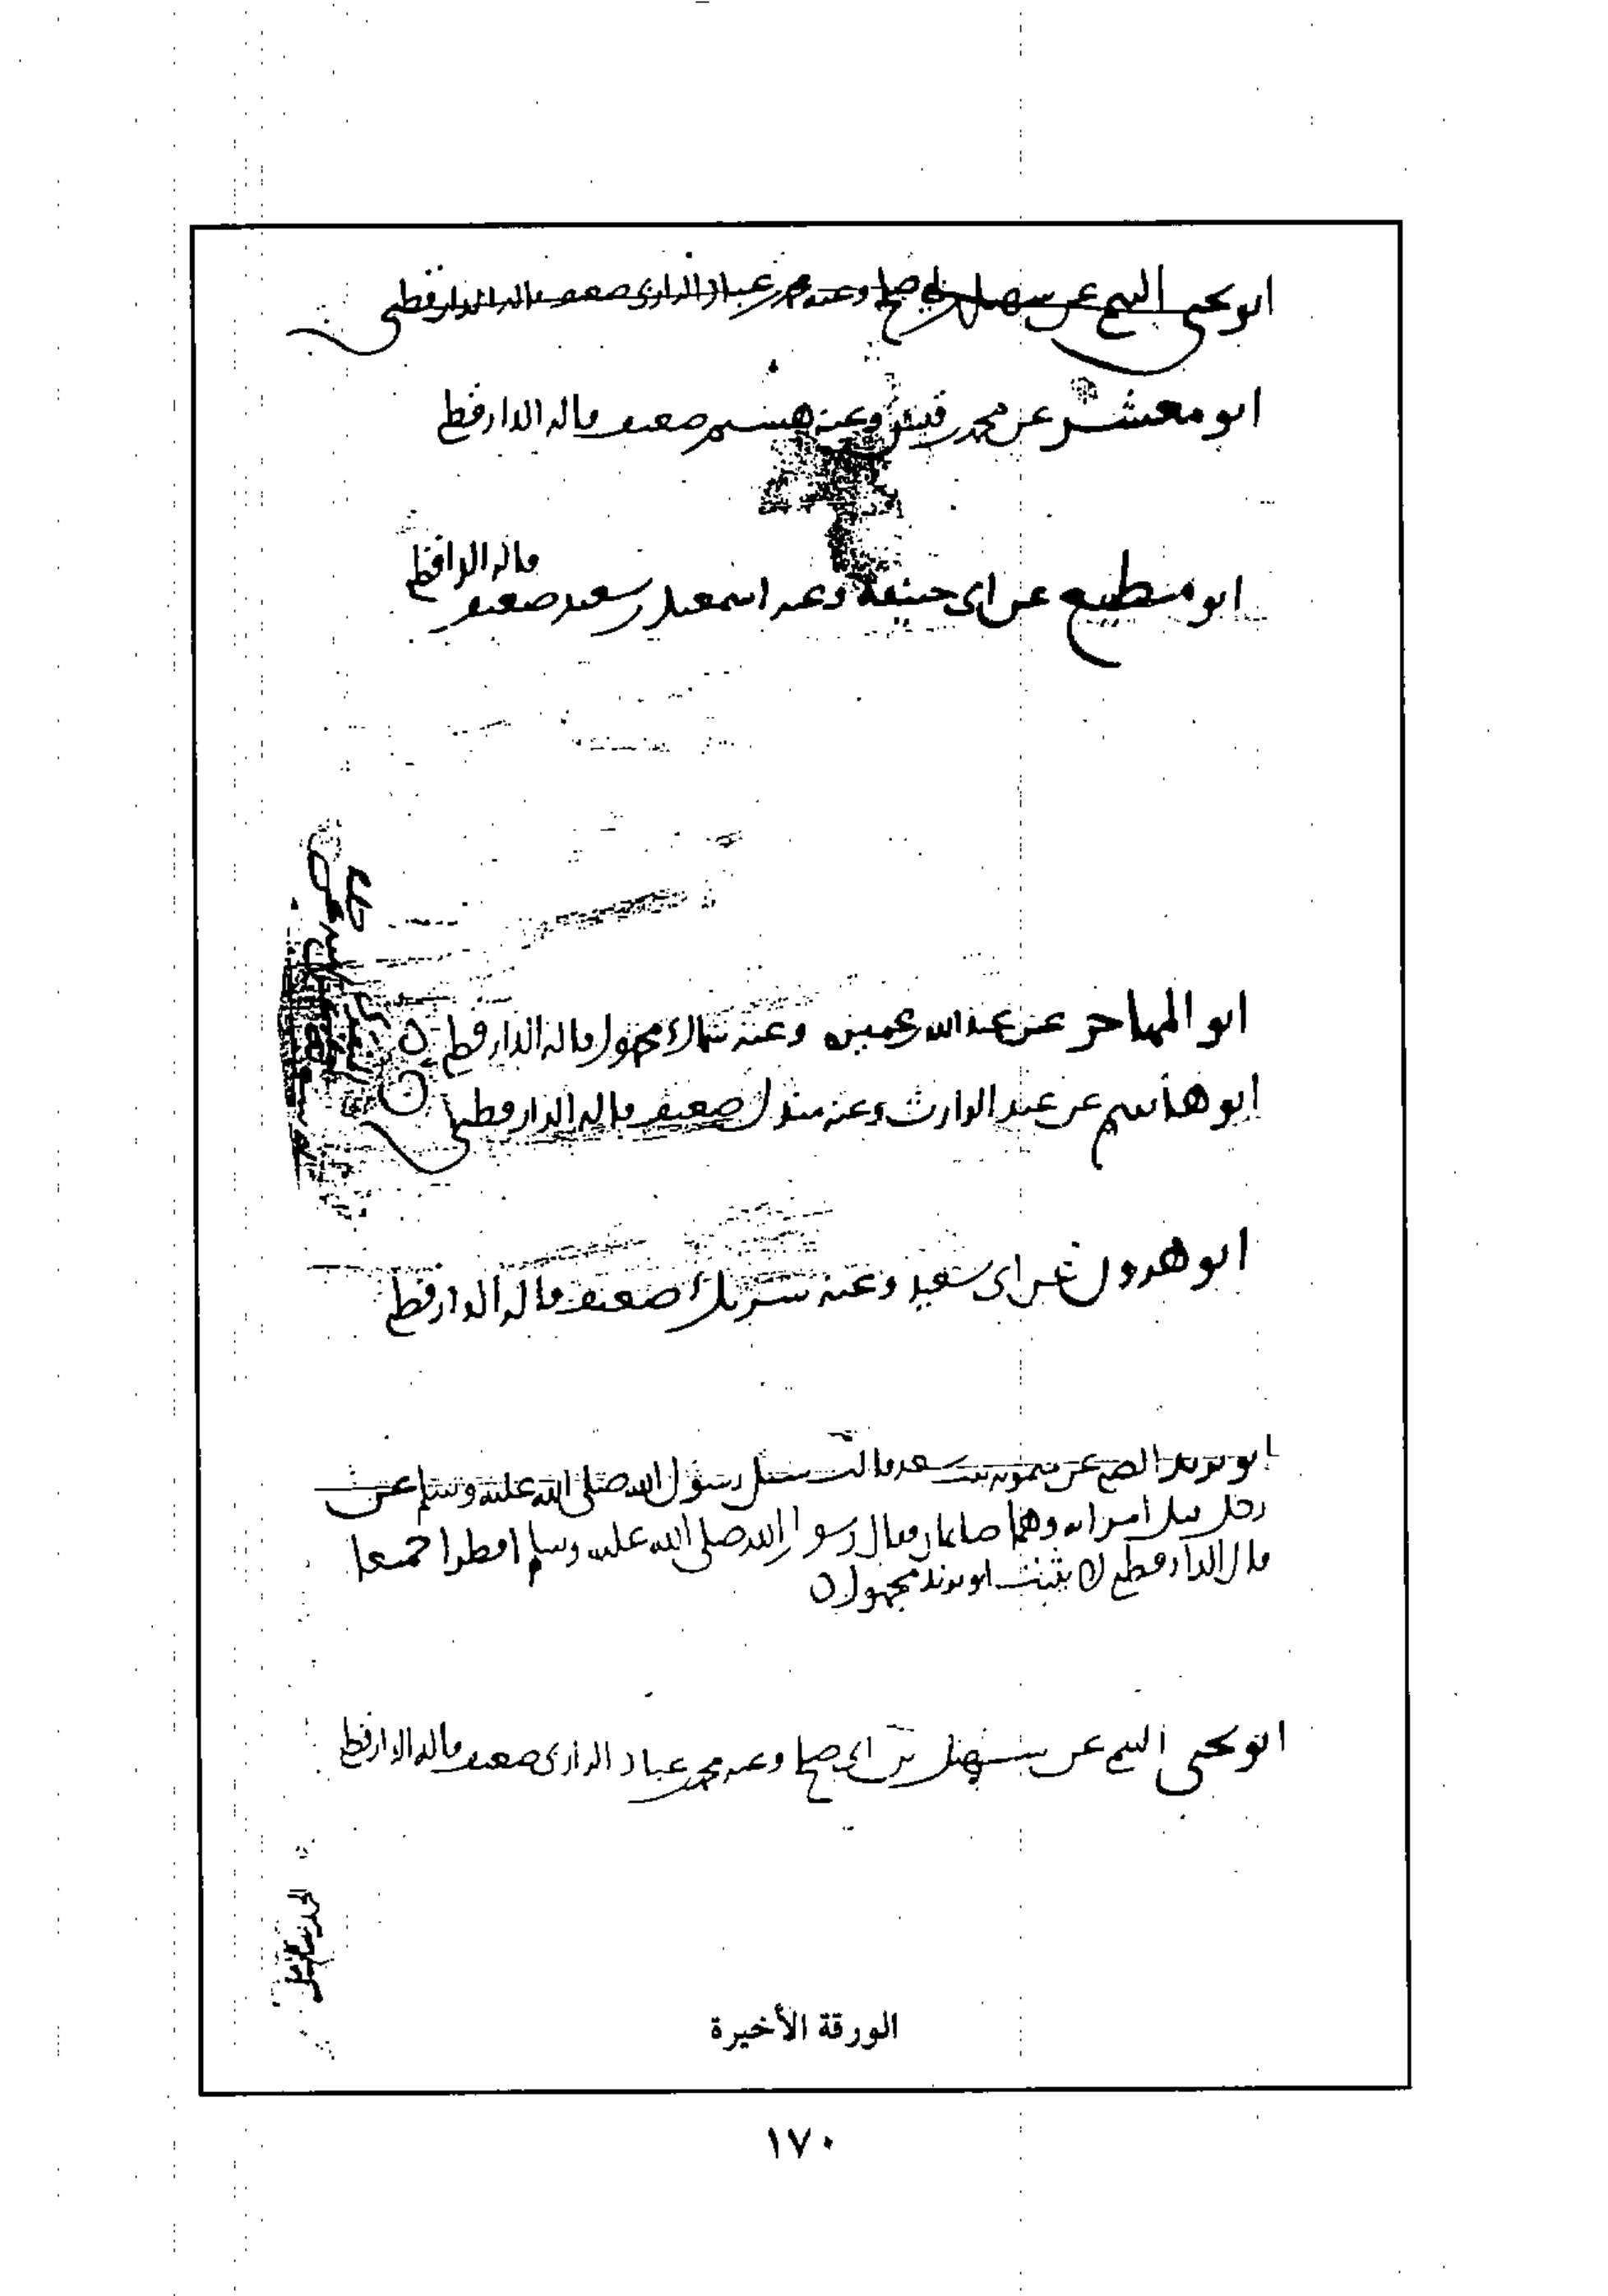 ابو يحيى التيمي عن سهيل بن ابي صالح وعنه محمد بن عباد الرازي ضعيف قاله الدارقطني
ابو معشر عن محمد بن قيس وعنه هشيم ضعيف قاله الدارقطني
قاله الدارقطني
ابو مطيع عن ابي حنيفة وعنه اسمعيل بن سعيد ضعيف
ابو المهاجر عن عبد الله بن عميرة وعنه سماك مجهول قاله الدارقطني
ابو هاشم عن عبد الوارث وعنه مندل ضعيف قاله الدارقطني
ابو هرون عن ابي سعيد وعنه شريك ضعيف قاله الدارقطني
ابو يزيد الضبي عن ميمونه بنت سعد قالت سئل رسول الله صلى الله عليه وسلم عن
رجل قبل امراته وهما صايمان فقال رسول الله صلى الله عليه وسلم افطرا جميعا
قال الدارقطني لا يثبت ابو يزيد مجهول
ابو يحيى التيمي عن سهيل بن ابي صالح وعنه محمد بن عباد الرازي ضعيف قاله الدارقطني
الورقة الأخيرة
١٧٠